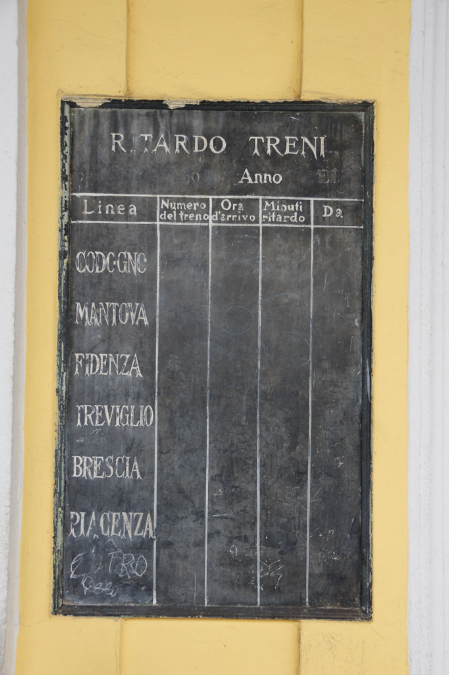 RITARDO TRENI
Anno
Linea
Numero
del treno
Ora
d'arrivo
Minuti
ritardo
Da
CODOGNO
MANTOVA
FIDENZA
TREVIGLIO
BRESCIA
PIACENZA